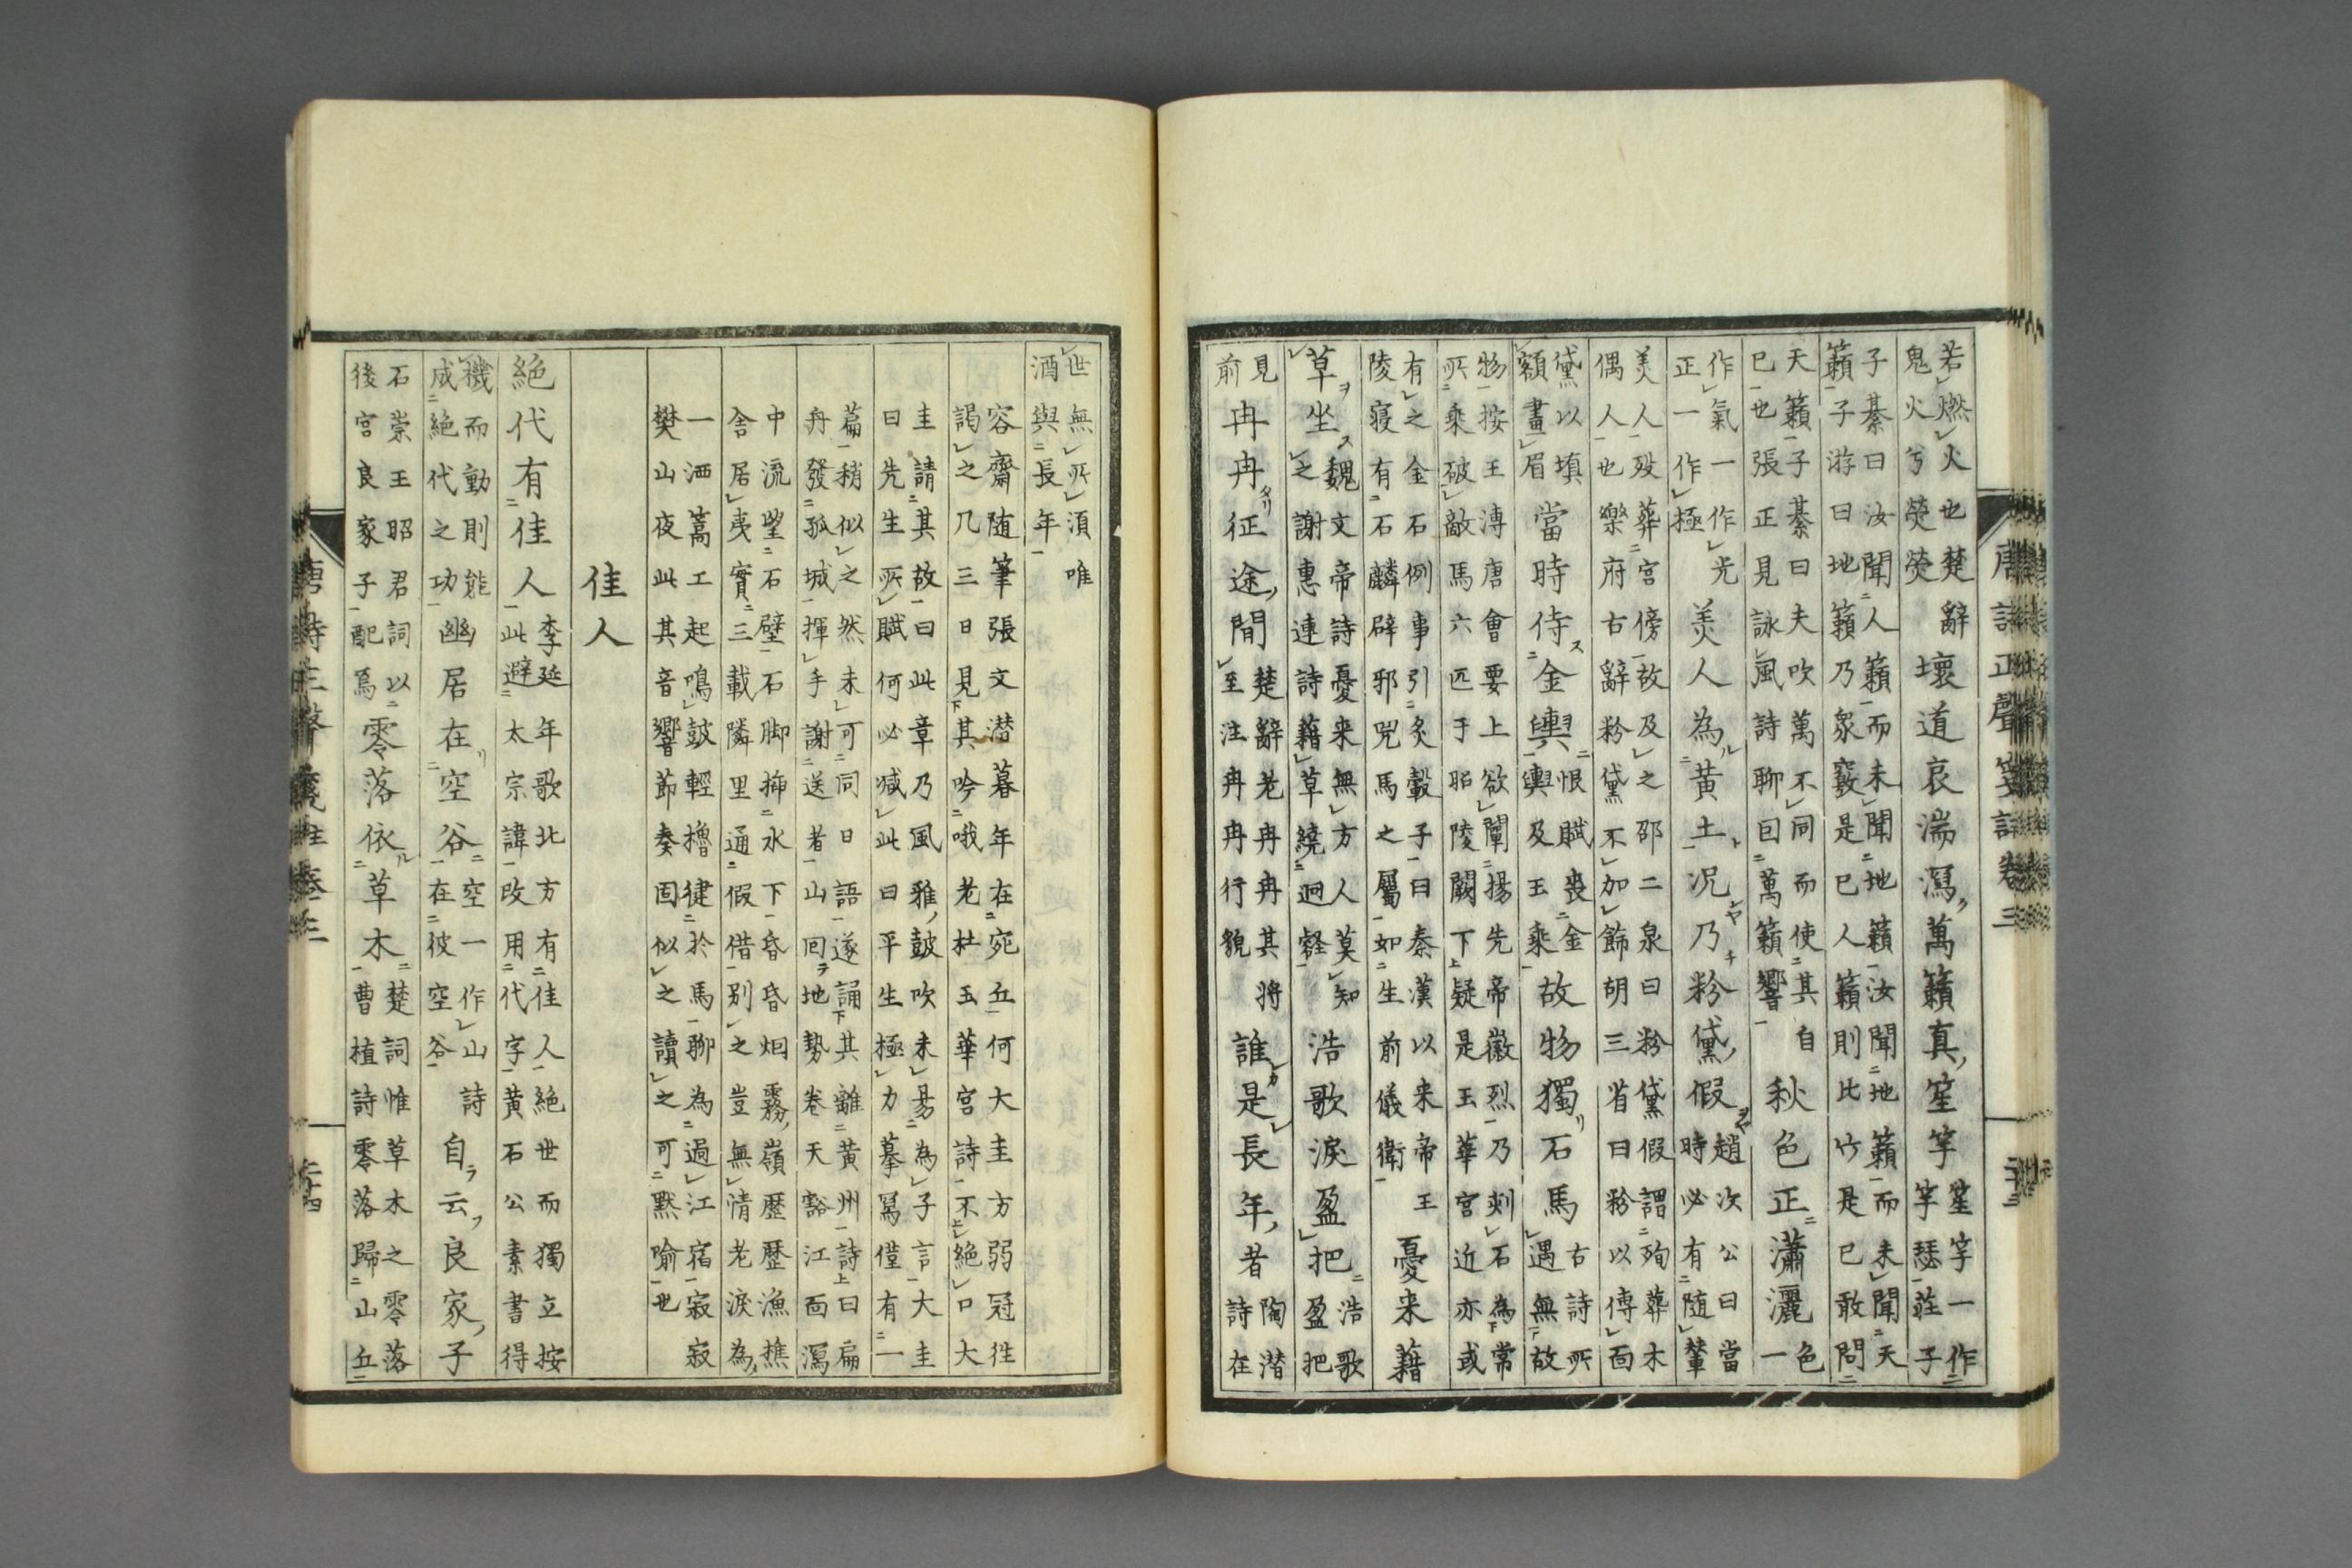 唐詩正聲箋註卷三
若燃火也楚辭
鬼火兮熒熒
壞道哀湍瀉萬籟真笙竽
笙竽一作
竽瑟莊子
子綦曰汝聞人籟而未聞地籟汝聞地籟而未聞天
籟子游曰地籟乃衆竅是已人籟則比竹是已敢問
天籟子綦曰夫吹萬不同而使其自
已也張正見詠風詩聊囙萬籟響
秋色正瀟灑
色
一
作氣一作光
正一作極
美人為黃土况乃粉黛假
趙次公曰當
時必有随輦
美人歿葬宮傍故及之邵二泉曰粉黛假謂殉葬木
偶人也樂府古辭粉黛不加飾胡三省曰粉以傅靣
黛以填
額畫眉
當時侍金輿
恨賦喪金
輿及玉乘
故物獨石馬
古詩所
遇無故
物按王溥唐會要上欲闡揚先帝徽烈乃刻石為常
所乘破敵馬六匹于昭陵闕下疑是玉華宮近亦或
有之金石例事引炙轂子曰秦漢以来帝王
陵寢有石麟辟邪兕馬之屬如生前儀衛
憂来藉
草坐
魏文帝詩憂来無方人莫知
之謝惠連詩藉草繞迴壑
浩歌淚盈把
浩歌
盈把
見
前
冉冉征途間
楚辭老冉冉其将
至注冉冉行貌
誰是長年者
陶潜
詩在
世無所須唯
酒與長年
容齋随筆張文潜暮年在宛丘何大圭方弱冠徃
謁之凡三日見其吟哦老杜玉華宮詩不絕口大
圭請其故曰此章乃風雅鼓吹未易為子言大圭
曰先生所賦何必减此曰平生極力摹冩僅有一
篇稍似之然未可同日語遂誦其離黃州詩曰扁
舟發孤城揮手謝送者山囘地勢卷天豁江靣瀉
中流望石壁石脚插水下昏昏烟霧嶺歴歴漁樵
舍居夷實三載隣里通假借別之豈無情老淚為
一洒篙工起鳴鼓輕櫓健於馬聊為過江宿寂寂
樊山夜此其音響節奏固似之讀之可默喻也
佳人
絕代有佳人
李延年歌北方有佳人絕世而獨立按
此避太宗諱改用代字黃石公素書得
機而動則能
成絕代之功
幽居在空谷
空一作山詩
在彼空谷
自云良家子
石崇王昭君詞以
後宮良家子配焉
零落依草木
楚詞惟草木之零落
曹植詩零落歸山丘